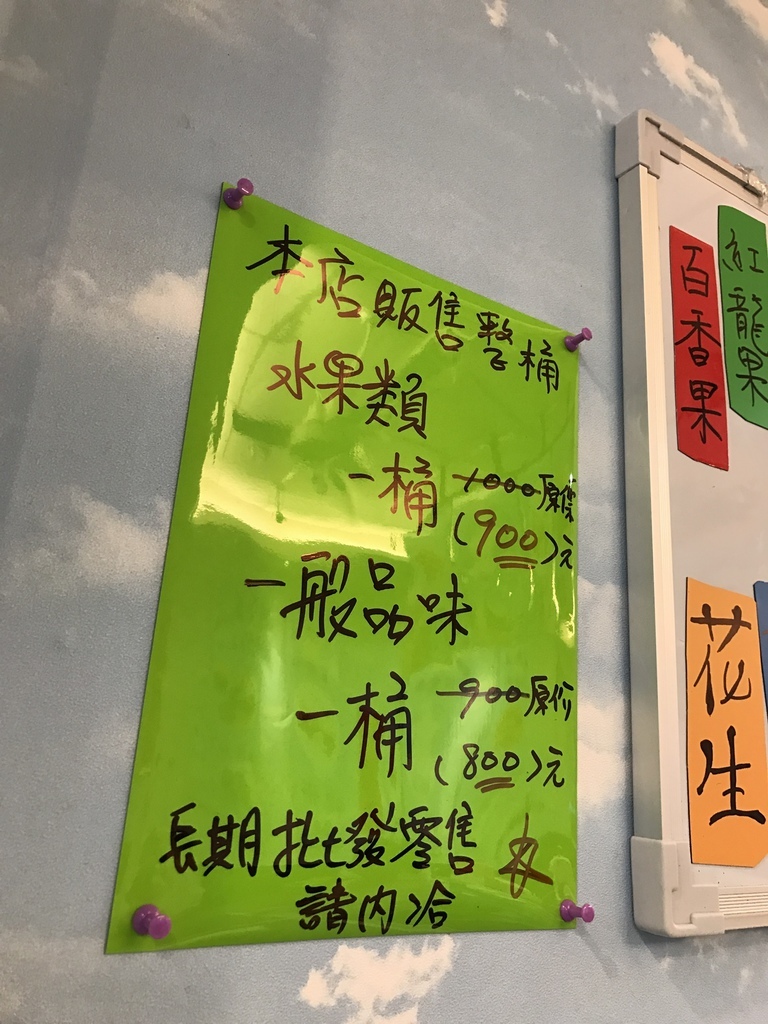 本店販售整桶
水果類
一桶 1000原價
(900)元
一般品味
一桶 900原价
(800)元
長期批發零售
請內洽
百香果
紅龍果
花生